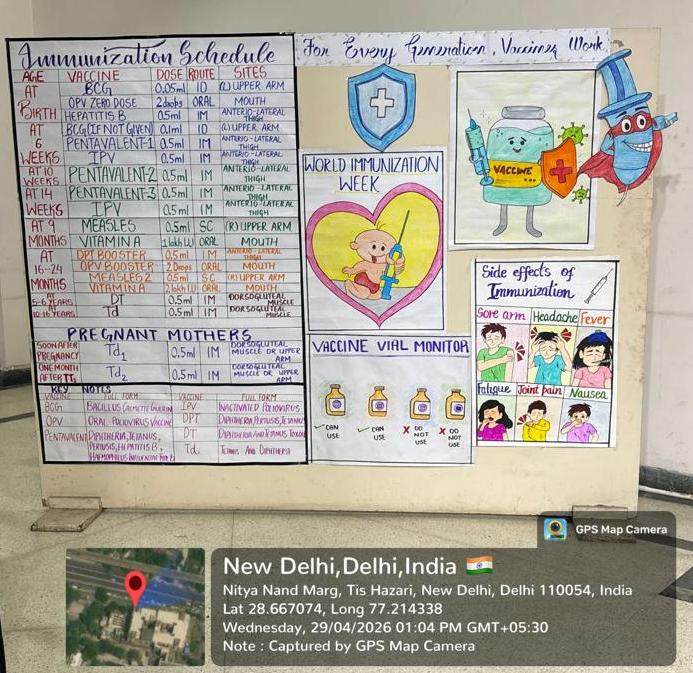 Immunization Schedule
AGE VACCINE DOSE ROUTE SITES
AT BIRTH
BCG 0.05ml ID (L) UPPER ARM
OPV ZERO DOSE 2drops ORAL MOUTH
HEPATITIS B 0.5ml IM ANTERIO-LATERAL THIGH
AT 6 WEEKS
BCG(IF NOT GIVEN) 0.1ml ID (L) UPPER ARM
PENTAVALENT-1 0.5ml IM ANTERIO-LATERAL THIGH
IPV 0.5ml IM ANTERIO-LATERAL THIGH
AT 10 WEEKS PENTAVALENT-2 0.5ml IM ANTERIO-LATERAL THIGH
AT 14 WEEKS
PENTAVALENT-3 0.5ml IM ANTERIO-LATERAL THIGH
IPV 0.5ml IM ANTERIO-LATERAL THIGH
AT 9 MONTHS
MEASLES 0.5ml SC (R) UPPER ARM
VITAMIN A 1 lakh IU ORAL MOUTH
AT 16-24 MONTHS
DPT BOOSTER 0.5ml IM ANTERIO-LATERAL THIGH
OPV BOOSTER 2 Drops ORAL MOUTH
MEASLES 2 0.5ml SC (R) UPPER ARM
VITAMIN A 2 lakh IU ORAL MOUTH
AT 5-6 YEARS DT 0.5ml IM DORSOGLUTEAL MUSCLE
AT 10-16 YEARS Td 0.5ml IM DORSOGLUTEAL MUSCLE
PREGNANT MOTHERS
SOON AFTER PREGNANCY Td1 0.5ml IM DORSOGLUTEAL MUSCLE OR UPPER ARM
ONE MONTH AFTER TT1 Td2 0.5ml IM DORSOGLUTEAL MUSCLE OR UPPER ARM
KEY NOTES
VACCINE FULL FORM VACCINE FULL FORM
BCG BACILLUS CALMETTE GUERIN IPV INACTIVATED POLIOVIRUS
OPV ORAL POLIOVIRUS VACCINE DPT DIPHTHERIA, PERTUSIS, TETANUS
PENTAVALENT DIPHTHERIA, TETANUS, PERTUSIS, HEPATITIS B,
DT DIPHTHERIA AND TETANUS
Td TETANUS AND DIPHTHERIA
For Every Generation, Vaccines Work.
WORLD IMMUNIZATION
WEEK
VACCINE
VACCINE VIAL MONITOR
✓ CAN USE
✓ CAN USE
✗ DO NOT USE
✗ DO NOT USE
Side effects of
Immunization
Sore arm Headache Fever
Fatigue Joint pain Nausea
GPS Map Camera
New Delhi,Delhi,India
Nitya Nand Marg, Tis Hazari, New Delhi, Delhi 110054, India
Lat 28.667074, Long 77.214338
Wednesday, 29/04/2026 01:04 PM GMT+05:30
Note : Captured by GPS Map Camera